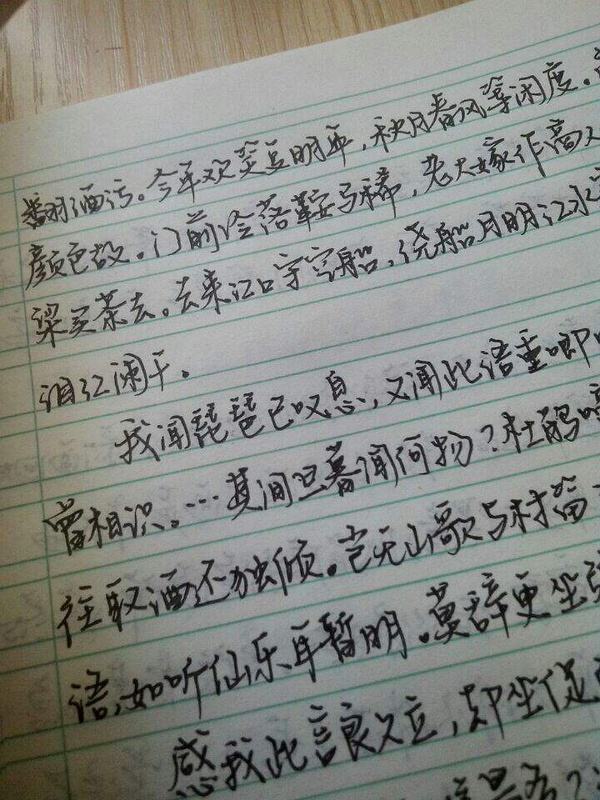 翻酒污。今年欢笑复明年,秋月春风等闲度。
颜色故。门前冷落鞍马稀,老大嫁作商人
梁买茶去。去来江口守空船,绕船月明江水
泪红阑干。
我闻琵琶已叹息,又闻此语重唧
曾相识。…其间旦暮闻何物?杜鹃啼
往取酒还独倾。岂无山歌与村笛
语,如听仙乐耳暂明。莫辞更坐弹
感我此言良久立,却坐促